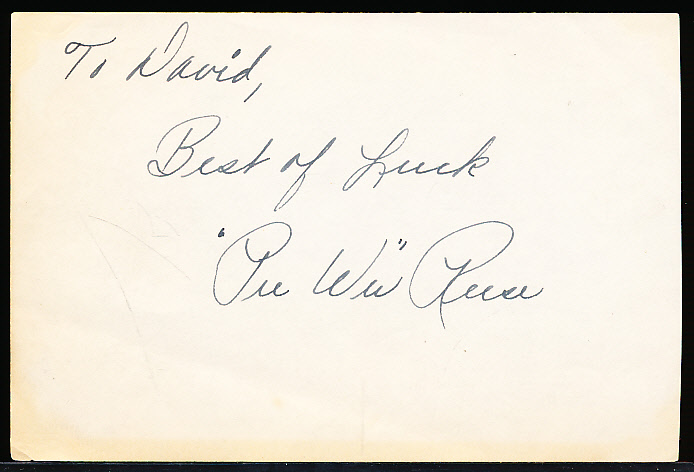 To David,
Best of Luck
"Pee Wee" Reese